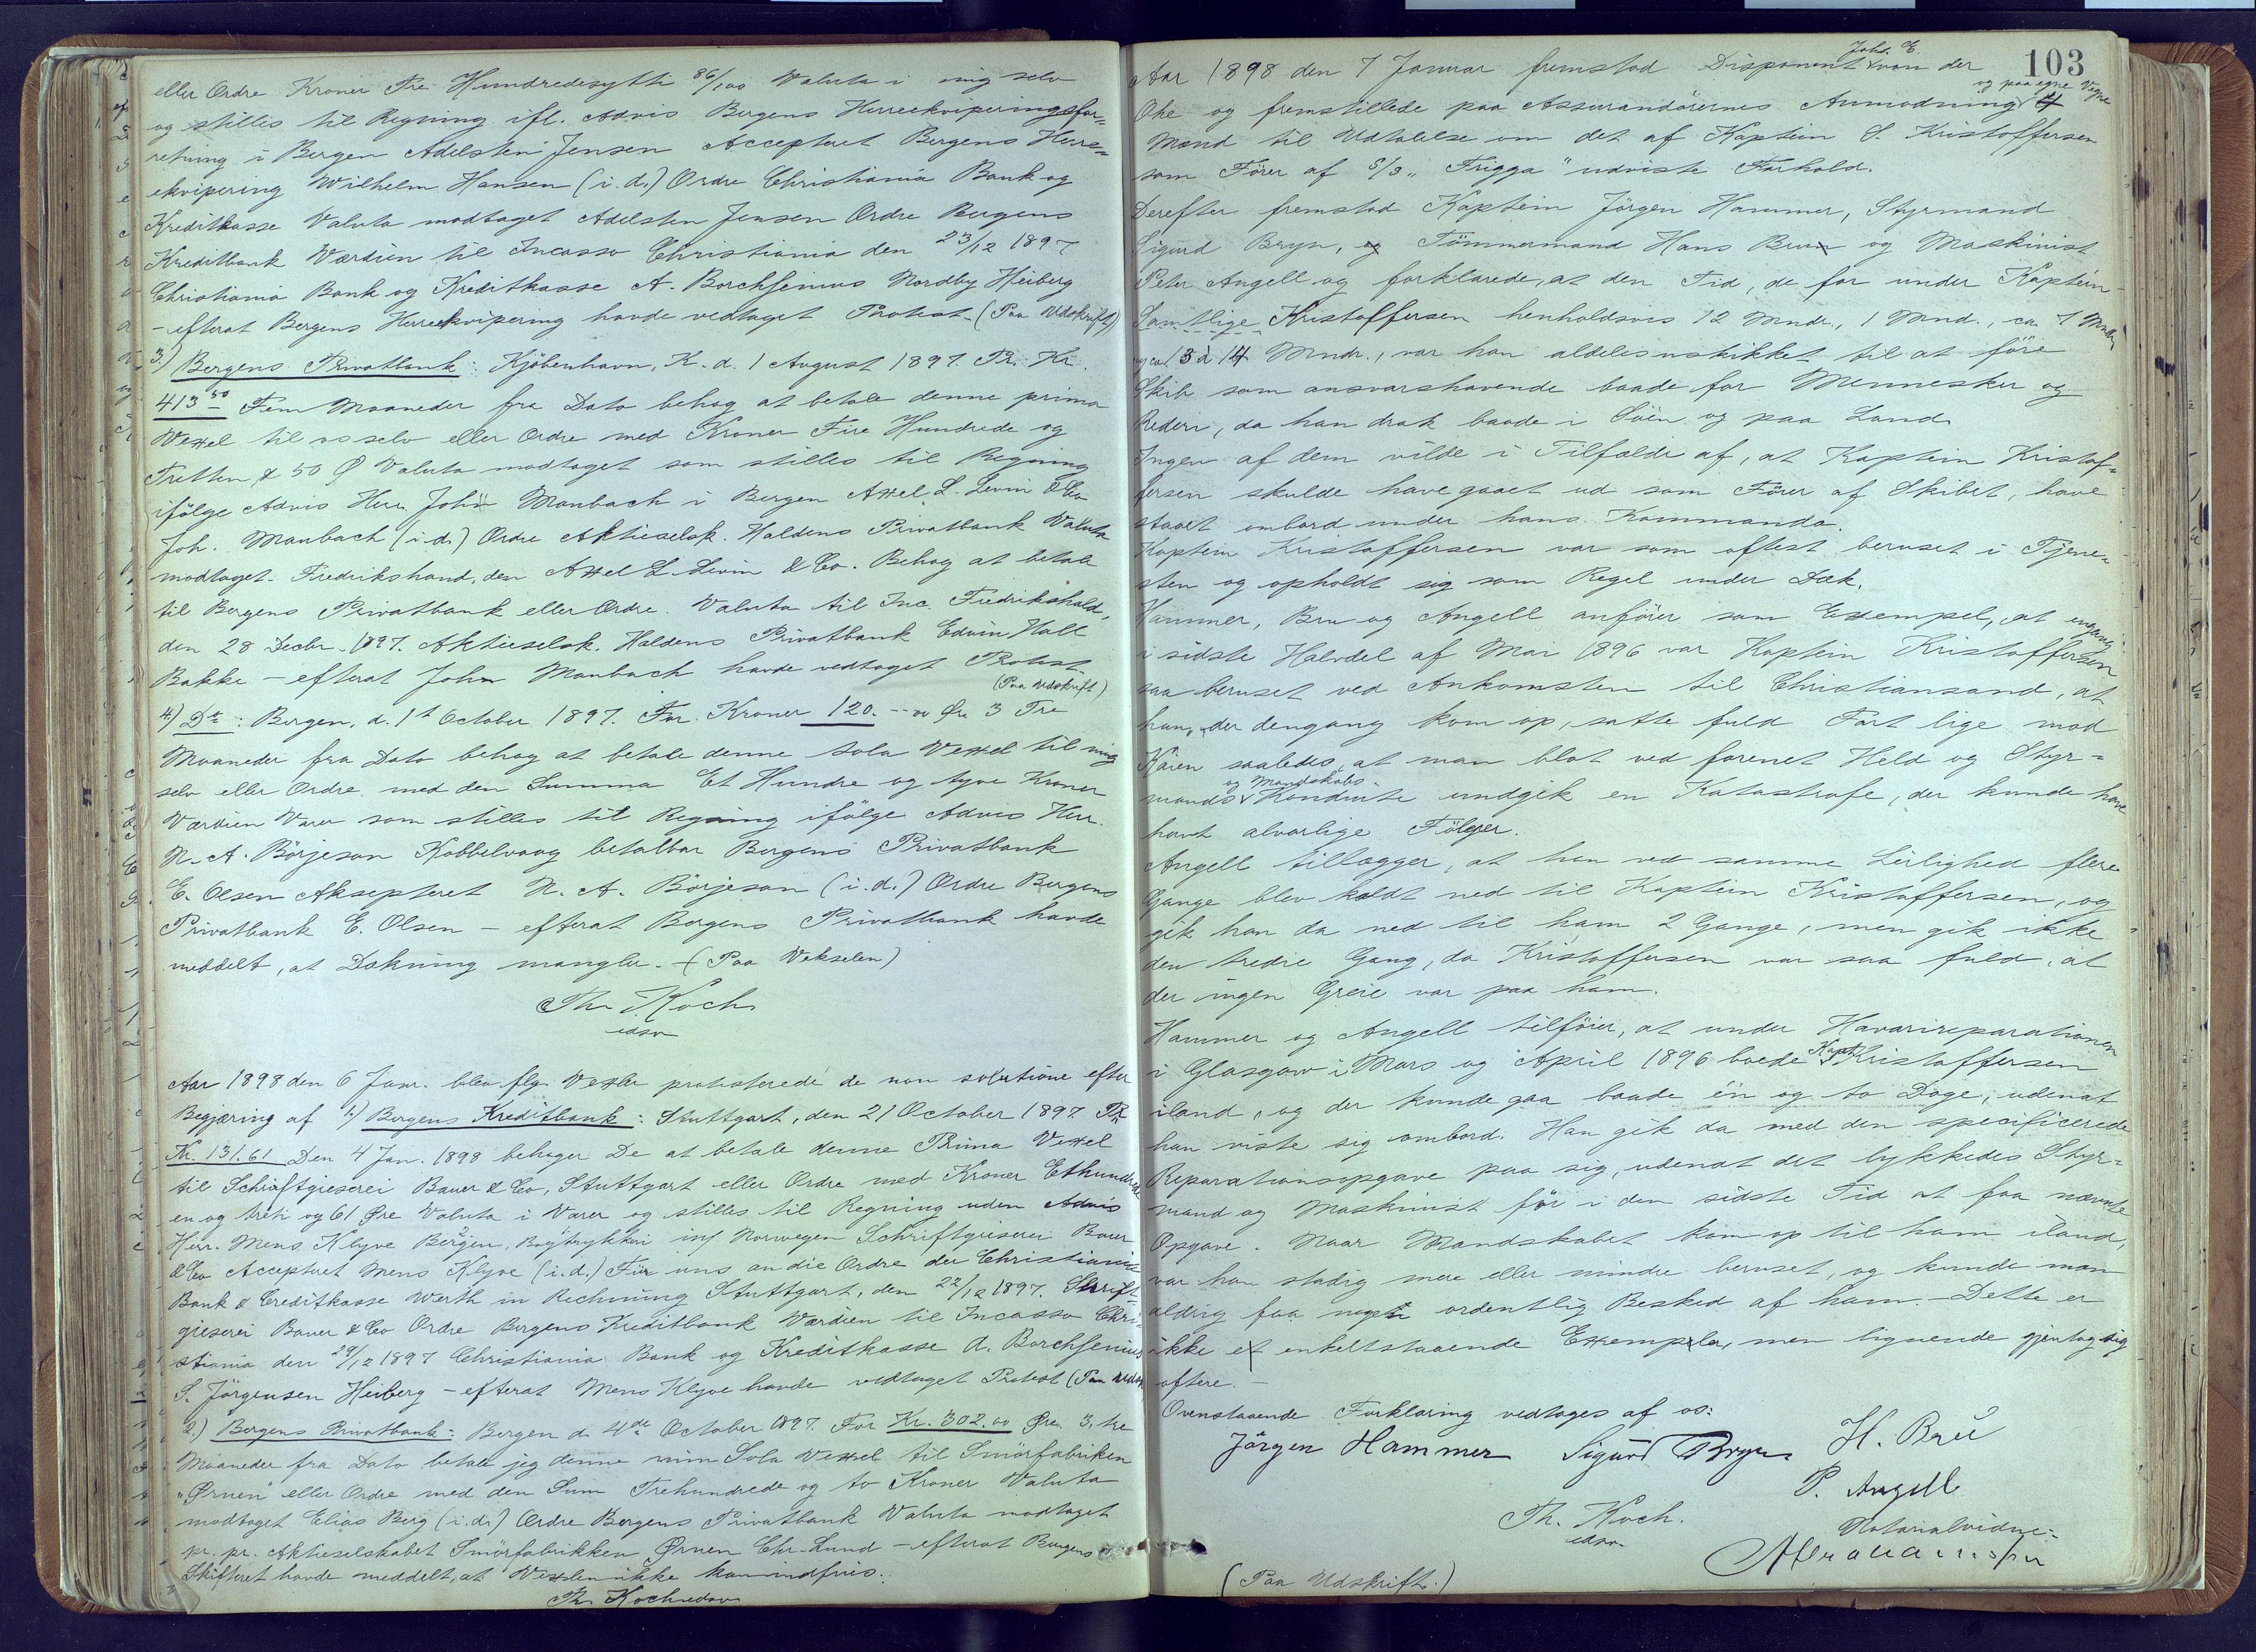 eller Ordre Kroner Tre Hundredesytti 86/100 Valuta i mig selv
og stilles til Regning ifl. Advis Bergens Herreekviperingsfor=
retning i Bergen Adelsten Jensen Accepteret Bergens Herre=
ekvipering Wilhelm Hansen (i.d.) Ordre Christiania Bank og
Kreditkasse Valuta modtaget Adelsten Jensen Ordre Bergens
Kreditbank Værdien til Incasso Christiania den 23/12 1897
Christiania Bank og Kreditkasse A. Borchsenius Nordby Heiberg
- efterat Bergens Herreekvipering havde vedtaget Protest. (Paa Udskrift)
3.) Bergens Privatbank: Kjöbenhavn, K. d. 1 August 1897. Pr. Kr.
413 50 Fem Maaneder fra Dato behag at betale denne prima
Vexel til os selv eller Ordre med Kroner Fire Hundrede og
Tretten & 50 Ø Valuta modtaget som stilles til Regning
ifölge Advis Herr John Manbach i Bergen Axel L. Levin & Co
Joh. Manbach (i.d.) Ordre Aktieselsk. Haldens Privatbank Valuta
modtaget. Fredrikshand, den Axel L. Levin & Co. Behag at betale
til Bergens Privatbank eller Ordre. Valuta til Inc. Fredrikshald,
den 28 Decbr. 1897. Aktieselsk. Haldens Privatbank Edvin Hall
Bakke - efterat John Manbach havde vedtaget Protest
(Paa Udskrift)
4.) Do: Bergen, d. 1t October 1897. For Kroner 120. - Øre 3 Tre
Maaneder fra Dato behag at betale denne sola Vexel til mig
selv eller Ordre med den Summa Et Hundre og tyve Kroner
Værdien Varer som stilles til Regning ifölge Advis Herr.
N. A. Börjeson Kobbelvaag betalbar Bergens Privatbank
E. Olsen Aksepteret N. A. Börjeson (i.d.) Ordre Bergens
Privatbank E. Olsen - efterat Bergens Privatbank havde
meddelt, at Dækning mangler. - (Paa Vekselen)
Th. Koch
edsv
Aar 1898 den 6 Janr. blev flg. Vexler protesterede de non solutione efter
Begjæring af 1.) Bergens Kreditbank: Stuttgart, den 21 October 1897 Pr
Kr. 131.61 Den 4 Jan. 1898 behager De at betale denne Prima Vexel
til Schriftgieserei Bauer & Co, Stuttgart eller Ordre med Kroner Ethundrede
en og treti og 61 Øre Valuta i Varer og stilles til Regning uden Advis
Herr. Mens Klyve Bergen, Bogtrykkeri in Norwegen Schriftgieserei Bauer
& Co Accepteret Mens Klyve (i.d.) Für uns an die Ordre der Christiania
Bank & Creditkasse Werth in Rechnung Stuttgart, den 22/12 1897. Schrift
gieserei Bauer & Co Ordre Bergens Kreditbank Værdien til Incasso Chri=
stiania den 29/12 1897 Christiania Bank og Kreditkasse A. Borchsenius
S. Jörgensen Heiberg - efterat Mens Klyve havde vedtaget Protest (Paa Udskr
2.) Bergens Privatbank: Bergen d. 4de October 1897. For Kr. 302.00 Øre 3, tre
Maaneder fra Dato betaler jeg denne min Sola Vexel til Smörfabriken
"Ørnen" eller Ordre med den Sum Trehundrede og to Kroner Valuta
modtaget Elias Berg (i.d.) Ordre Bergens Privatbank Valuta modtaget
pr. pr. Aktieselskabet Smörfabrikken Ørnen Chr. Lund - efterat Bergens
Skifteret havde meddelt, at Vexlen ikke kan indfries.
Th. Koch edsv
103
Aar 1898 den 7 Januar fremstod Disponent Johs. E. von der
Ohe og fremstillede paa Assurandörernes og paa egne Vegne Anmodning 4
Mænd til Udtalelse om det af Kaptein S. Kristoffersen
som Förer af S/S "Frigga" udviste Forhold.
Derefter fremstod Kaptein Jörgen Hammer, Styrmand
Sigurd Bryn, og Tömmermand Hans Bru og Maskinist
Peter Angell og forklarede, at den Tid, de for under Kaptein
Samtlige Kristoffersen henholdsvis 12 Mndr., 1 Mnd., ca. 7 Mndr,
og ca. 13 à 14 Mndr., var han aldeles uskikket til at före
Skib som ansvarshavende baade for Mennesker og
Rederi, da han drak baade i Söen og paa Land.
Ingen af dem vilde i Tilfælde af, at Kaptein Kristof=
fersen skulde have gaaet ud som Förer af Skibet, have
staaet ombord under hans Kommando.
Kaptein Kristoffersen var som oftest beruset i Tjene-
sten og opholdt sig som Regel under Dæk.
Hammer, Bru og Angell anförer som Exempel, at engang
i sidste Halvdel af Mar 1896 var Kaptein Kristoffersen
saa beruset ved Ankomsten til Christiansand, at
han, der dengang kom op, satte fuld Fart lige mod
Kaien saaledes, at man blot ved forenet Held og Styr=
mands og Mandskabs Konduite undgik en Katastrofe, der kunde have
havt alvorlige Fölger.
Angell tillægger, at han ved samme Leilighed flere
Gange blev kaldt ned til Kaptein Kristoffersen, og
gik han da ned til ham 2 Gange, men gik ikke
den tredie Gang, da Kristoffersen var saa fuld, at
der ingen Greie var paa ham.
Hammer og Angell tilföier, at under Havarireparationen
i Glasgow i Mars og April 1896 boede Kapt. Kristoffersen
iland, og der kunde gaa baade én og to Dage, udenat
han viste sig ombord. Han gik da med den specificerede
Reparationsopgave paa sig, udenat det lykkedes Styr=
mand og Maskinist för i den sidste Tid at faa nævnte
Opgave. Naar Mandskabet kom op til ham iland,
var han stadig mere eller mindre beruset, og kunde man
aldrig faa noget ordentlig Besked af ham. - Dette er
ikke et enkeltstaaende Exempler, men lignende gjentog sig
oftere. -
Ovenstaaende Forklaring vedtages af os:
Jörgen Hammer Sigurd Bryn H. Bru
P. Angell
Th. Koch.
edsv.
Notarialvidne:
(Paa Udskrift.)